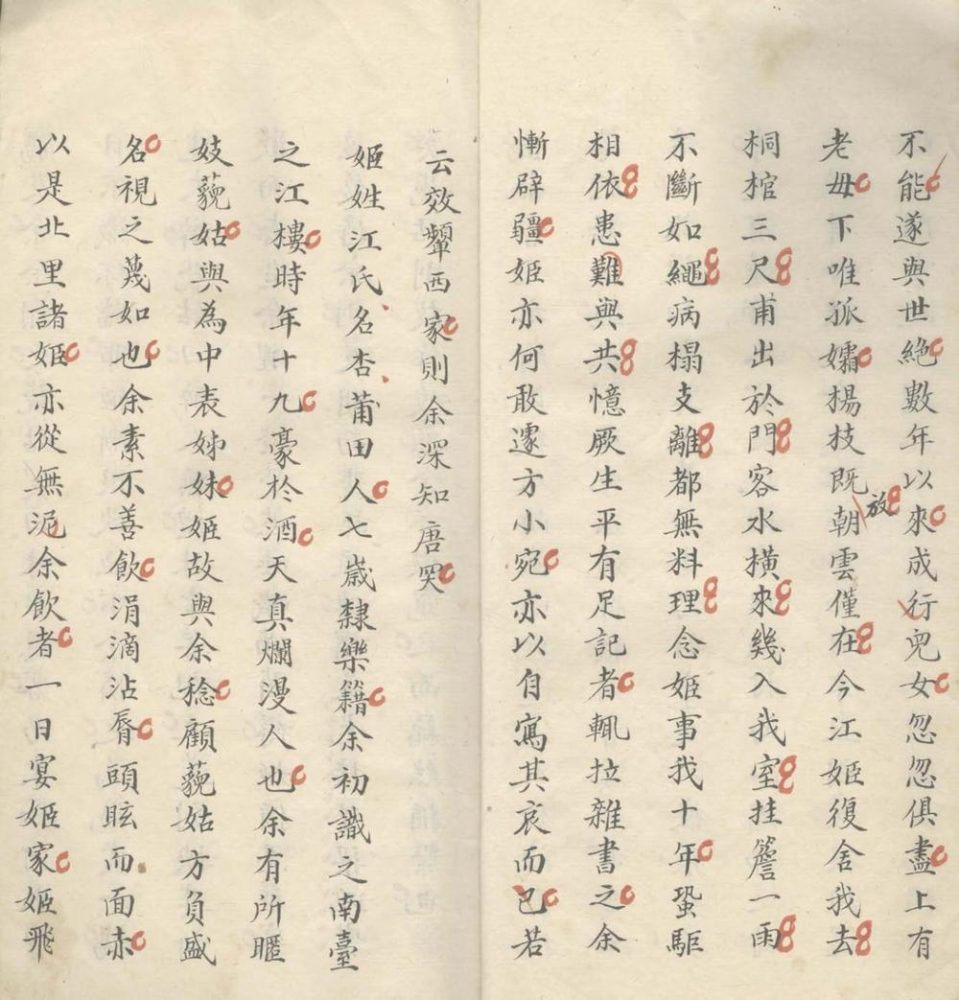 不能遂與世絕數年以來成行兒女忽忽俱盡上有
老母下唯孤孀楊枝既放朝雲僅在今江姬復舍我去
桐棺三尺甫出於門客水橫來幾入我室挂簷一雨
不斷如繩病榻支離都無料理念姬事我十年蛩駏
相依患難與共憶厥生平有足記者輒拉雜書之余
慚辟疆姬亦何敢遽方小宛亦以自寫其哀而已若
云效顰西家則余深知唐突
姬姓江氏名杏莆田人七歲隸樂籍余初識之南臺
之江樓時年十九豪於酒天真爛漫人也余有所暱
妓藐姑與為中表姊妹姬故與余稔顧藐姑方負盛
名視之蔑如也余素不善飲涓滴沾脣頭眩而面赤
以是北里諸姬亦從無泥余飲者一日宴姬家姬飛